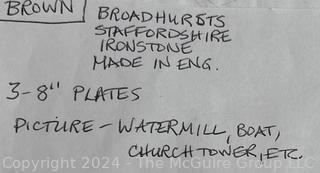 BROWN
BROADHURSTS
STAFFORDSHIRE
IRONSTONE
MADE IN ENG.
3-8" PLATES
PICTURE - WATERMILL, BOAT,
CHURCH TOWER, ETC.
Copyright 2024 - The McGuire Group LLC